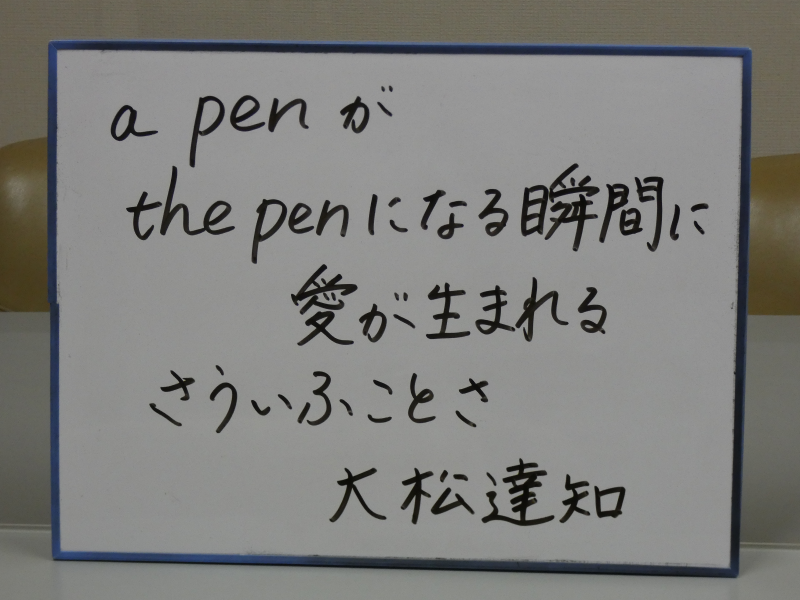 a pen が
the pen になる瞬間に
愛が生まれる
さういふことさ
大松達知